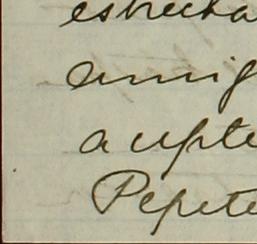 estrecha
amig
acepte
Pepete